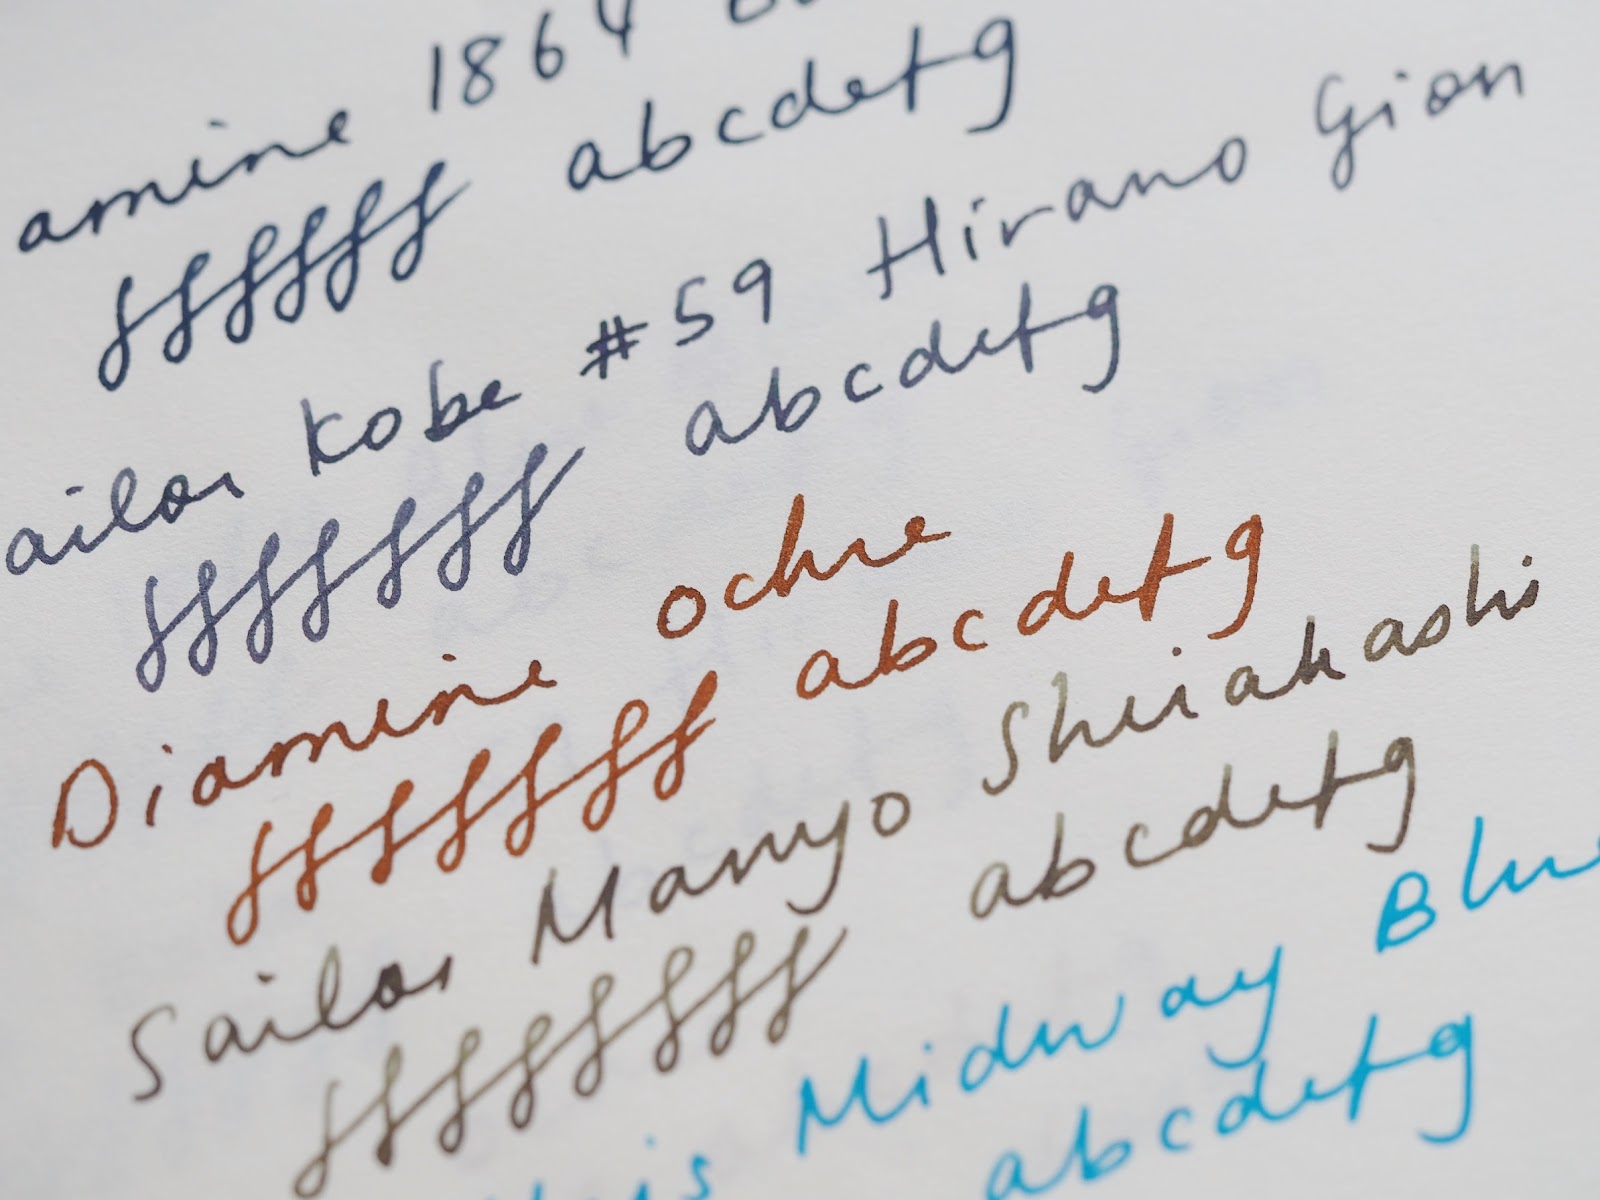 amine 1864
ffffff abcdefg
ailor Kobe #59 Hirano Gion
fffffff abcdefg
Diamine ochre
fffffff abcdefg
Sailor Manyo Shirakashi
ffffffff abcdefg
Midway Blue
abcdefg